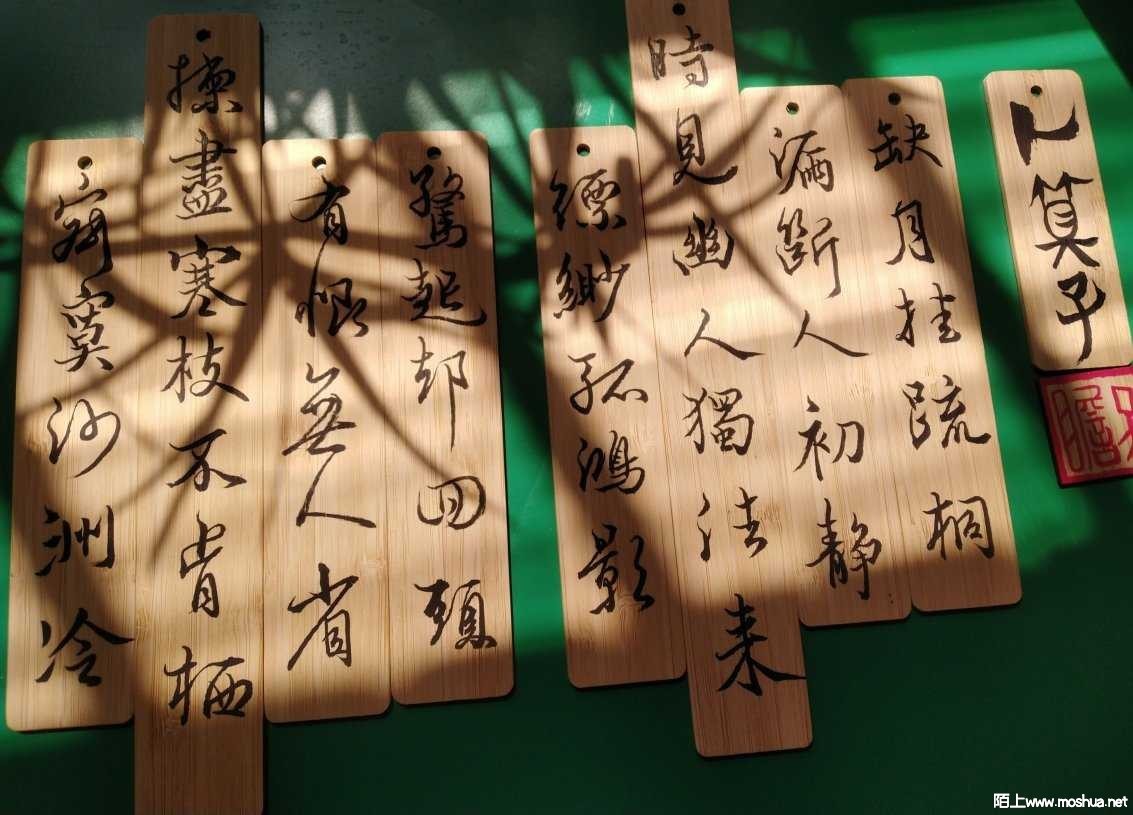 卜算子
缺月挂疏桐
漏断人初静
時見幽人獨往来
缥緲孤鴻影
驚起却回頭
有恨無人省
揀盡寒枝不肯栖
寂寞沙洲冷
陌上www.moshua.net